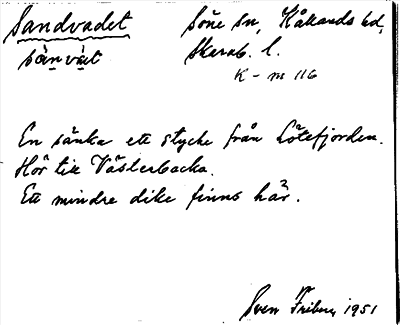 Sandvadet Söne sn, Kållands hd,
sànvàt Skarab. l.
K-m 116
En sänka ett stycke från Lötefjorden.
Hör till Västerbacka.
Ett mindre dike finns här.
Sven Friberg 1951